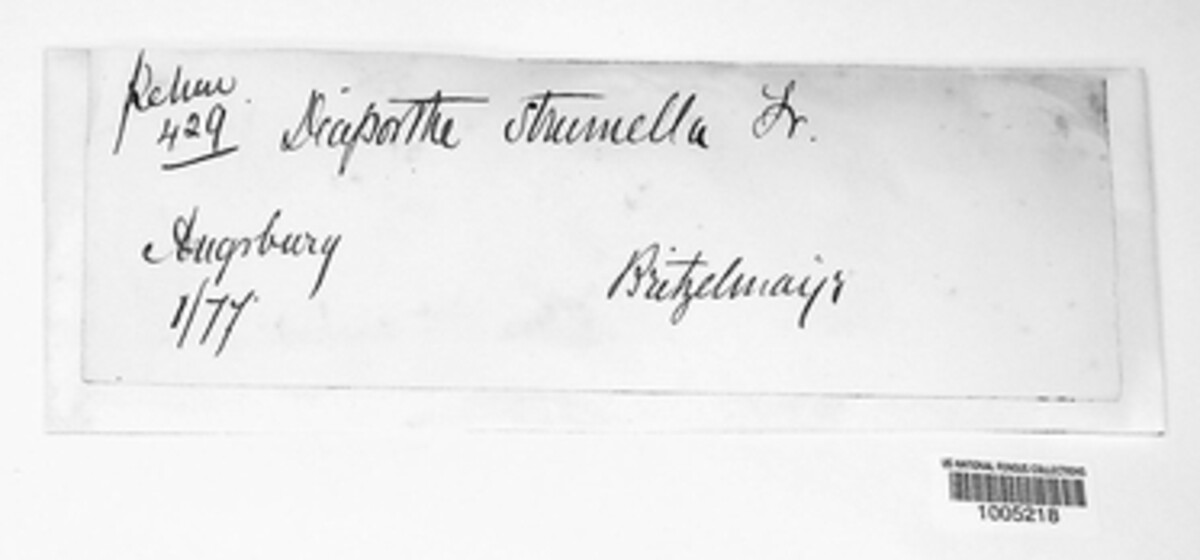 Rehm
429
Diaporthe strumella Fr.
Augsburg
1/77
Britzelmayr
US NATIONAL FUNGUS COLLECTIONS
1005218